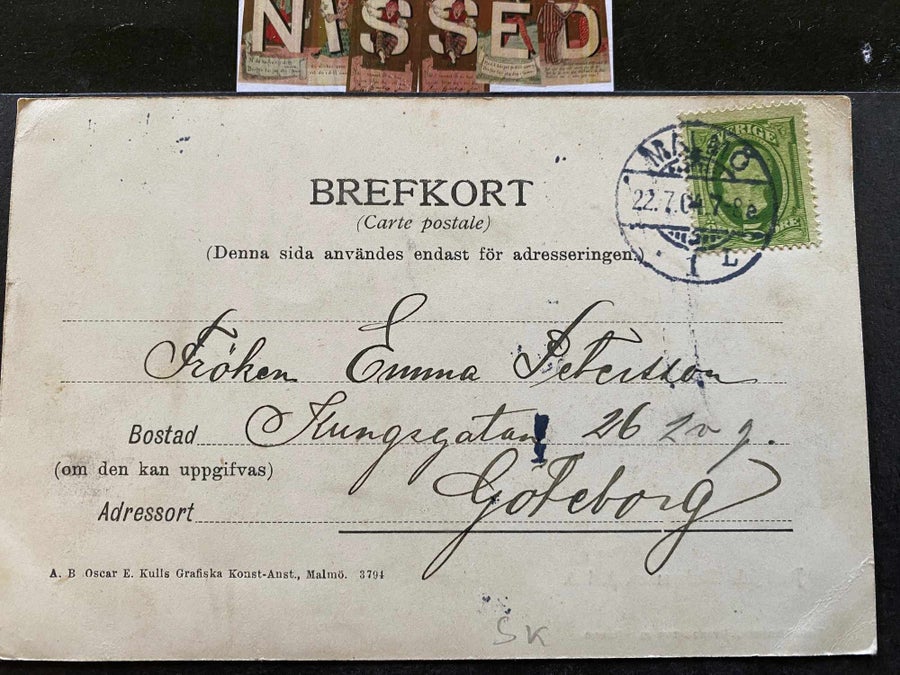 NISSED
SVERIGE
MALMÖ
22.7.04.7-8e
1 L
BREFKORT
(Carte postale)
(Denna sida användes endast för adresseringen.)
Fröken Emma Petersson
Bostad Kungsgatan 26 2v g.
(om den kan uppgifvas)
Göteborg
Adressort
A. B Oscar E. Kulls Grafiska Konst-Anst., Malmö. 3794
SK